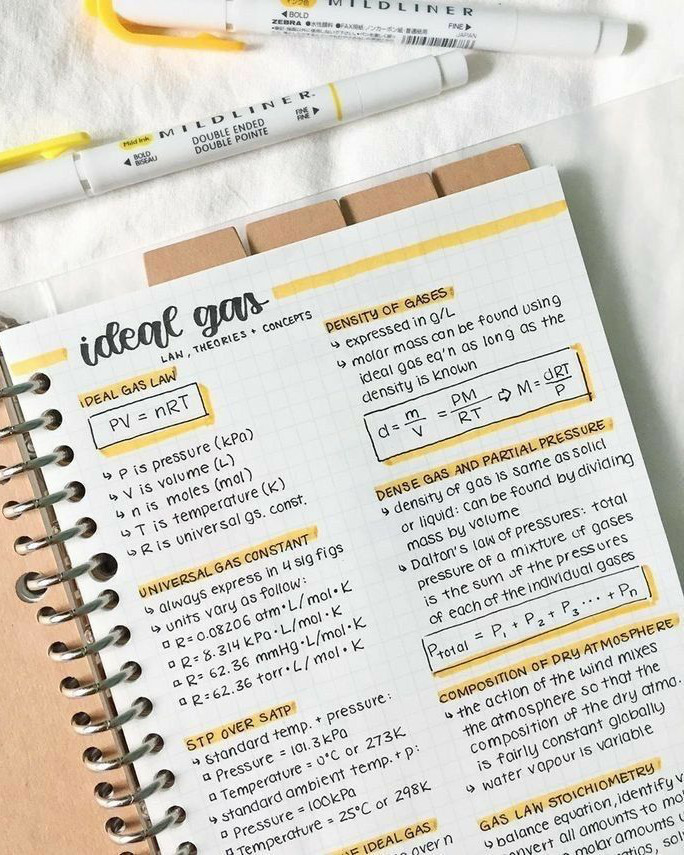 MILDLINER
BOLD
FINE
ZEBRA ●水性顔料 ●FAX用紙・ノンカーボン紙・普通紙用
JAPAN
Mild ink MILDLINER.
BOLD
BISEAU
DOUBLE ENDED
DOUBLE POINTE
FINE
FINE
ideal gas
LAW, THEORIES + CONCEPTS
IDEAL GAS LAW
PV = nRT
↳ P is pressure (kPa)
↳ V is volume (L)
↳ n is moles (mol)
↳ T is temperature (K)
↳ R is universal gs. const.
UNIVERSAL GAS CONSTANT
↳ always express in 4 sig figs
↳ units vary as follow:
▫ R=0.08206 atm•L/mol•K
▫ R= 8.314 kPa•L/mol•K
▫ R= 62.36 mmHg•L/mol•K
▫ R=62.36 torr•L/mol•K
STP OVER SATP
↳ standard temp. + pressure:
▫ Pressure = 101.3 kPa
▫ Temperature = 0°C or 273K
↳ standard ambient temp.+ p:
▫ Pressure = 100kPa
▫ Temperature = 25°C or 298K
OF IDEAL GAS
over n
DENSITY OF GASES
↳ expressed in g/L
↳ molar mass can be found using
ideal gas eq'n as long as the
density is known
d = m/V = PM/RT ⇨ M = dRT/P
DENSE GAS AND PARTIAL PRESSURE
↳ density of gas is same as solid
or liquid: can be found by dividing
mass by volume
↳ Dalton's law of pressures: total
pressure of a mixture of gases
is the sum of the pressures
of each of the individual gases
Ptotal = P₁ + P₂ + P₃ ··· + Pn
COMPOSITION OF DRY ATMOSPHERE
↳ the action of the wind mixes
the atmosphere so that the
composition of the dry atmo.
is fairly constant globally
↳ water vapour is variable
GAS LAW STOICHIOMETRY
↳ balance equation, identify
convert all amounts to
molar amounts